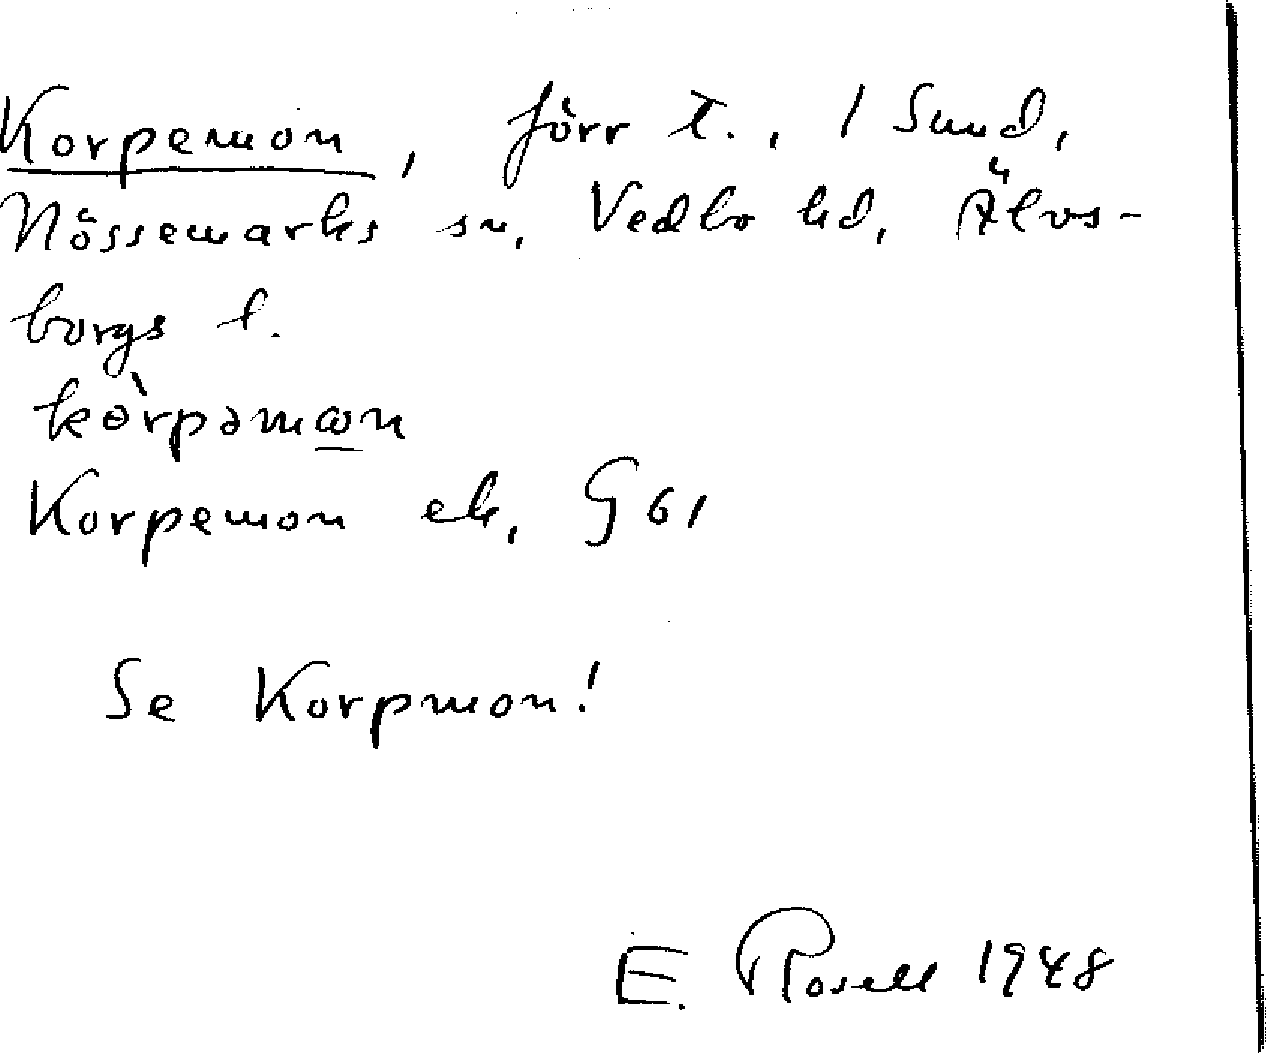 Korpemon, förr t., 1 Sund,
Nössemarks sn, Vedbo hd, Älvs-
borgs l.
kɵ̀rpəmωn
Korpemon ek, G 61
Se Korpmon!
E. Rosell 1948